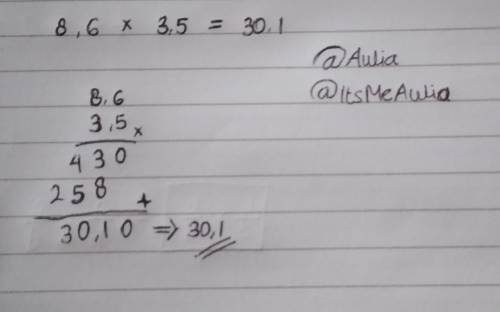 8,6 × 3,5 = 30,1
@Aulia
@ItsMeAulia
8,6
3,5 ×
430
258 +
30,10 ⇒ 30,1